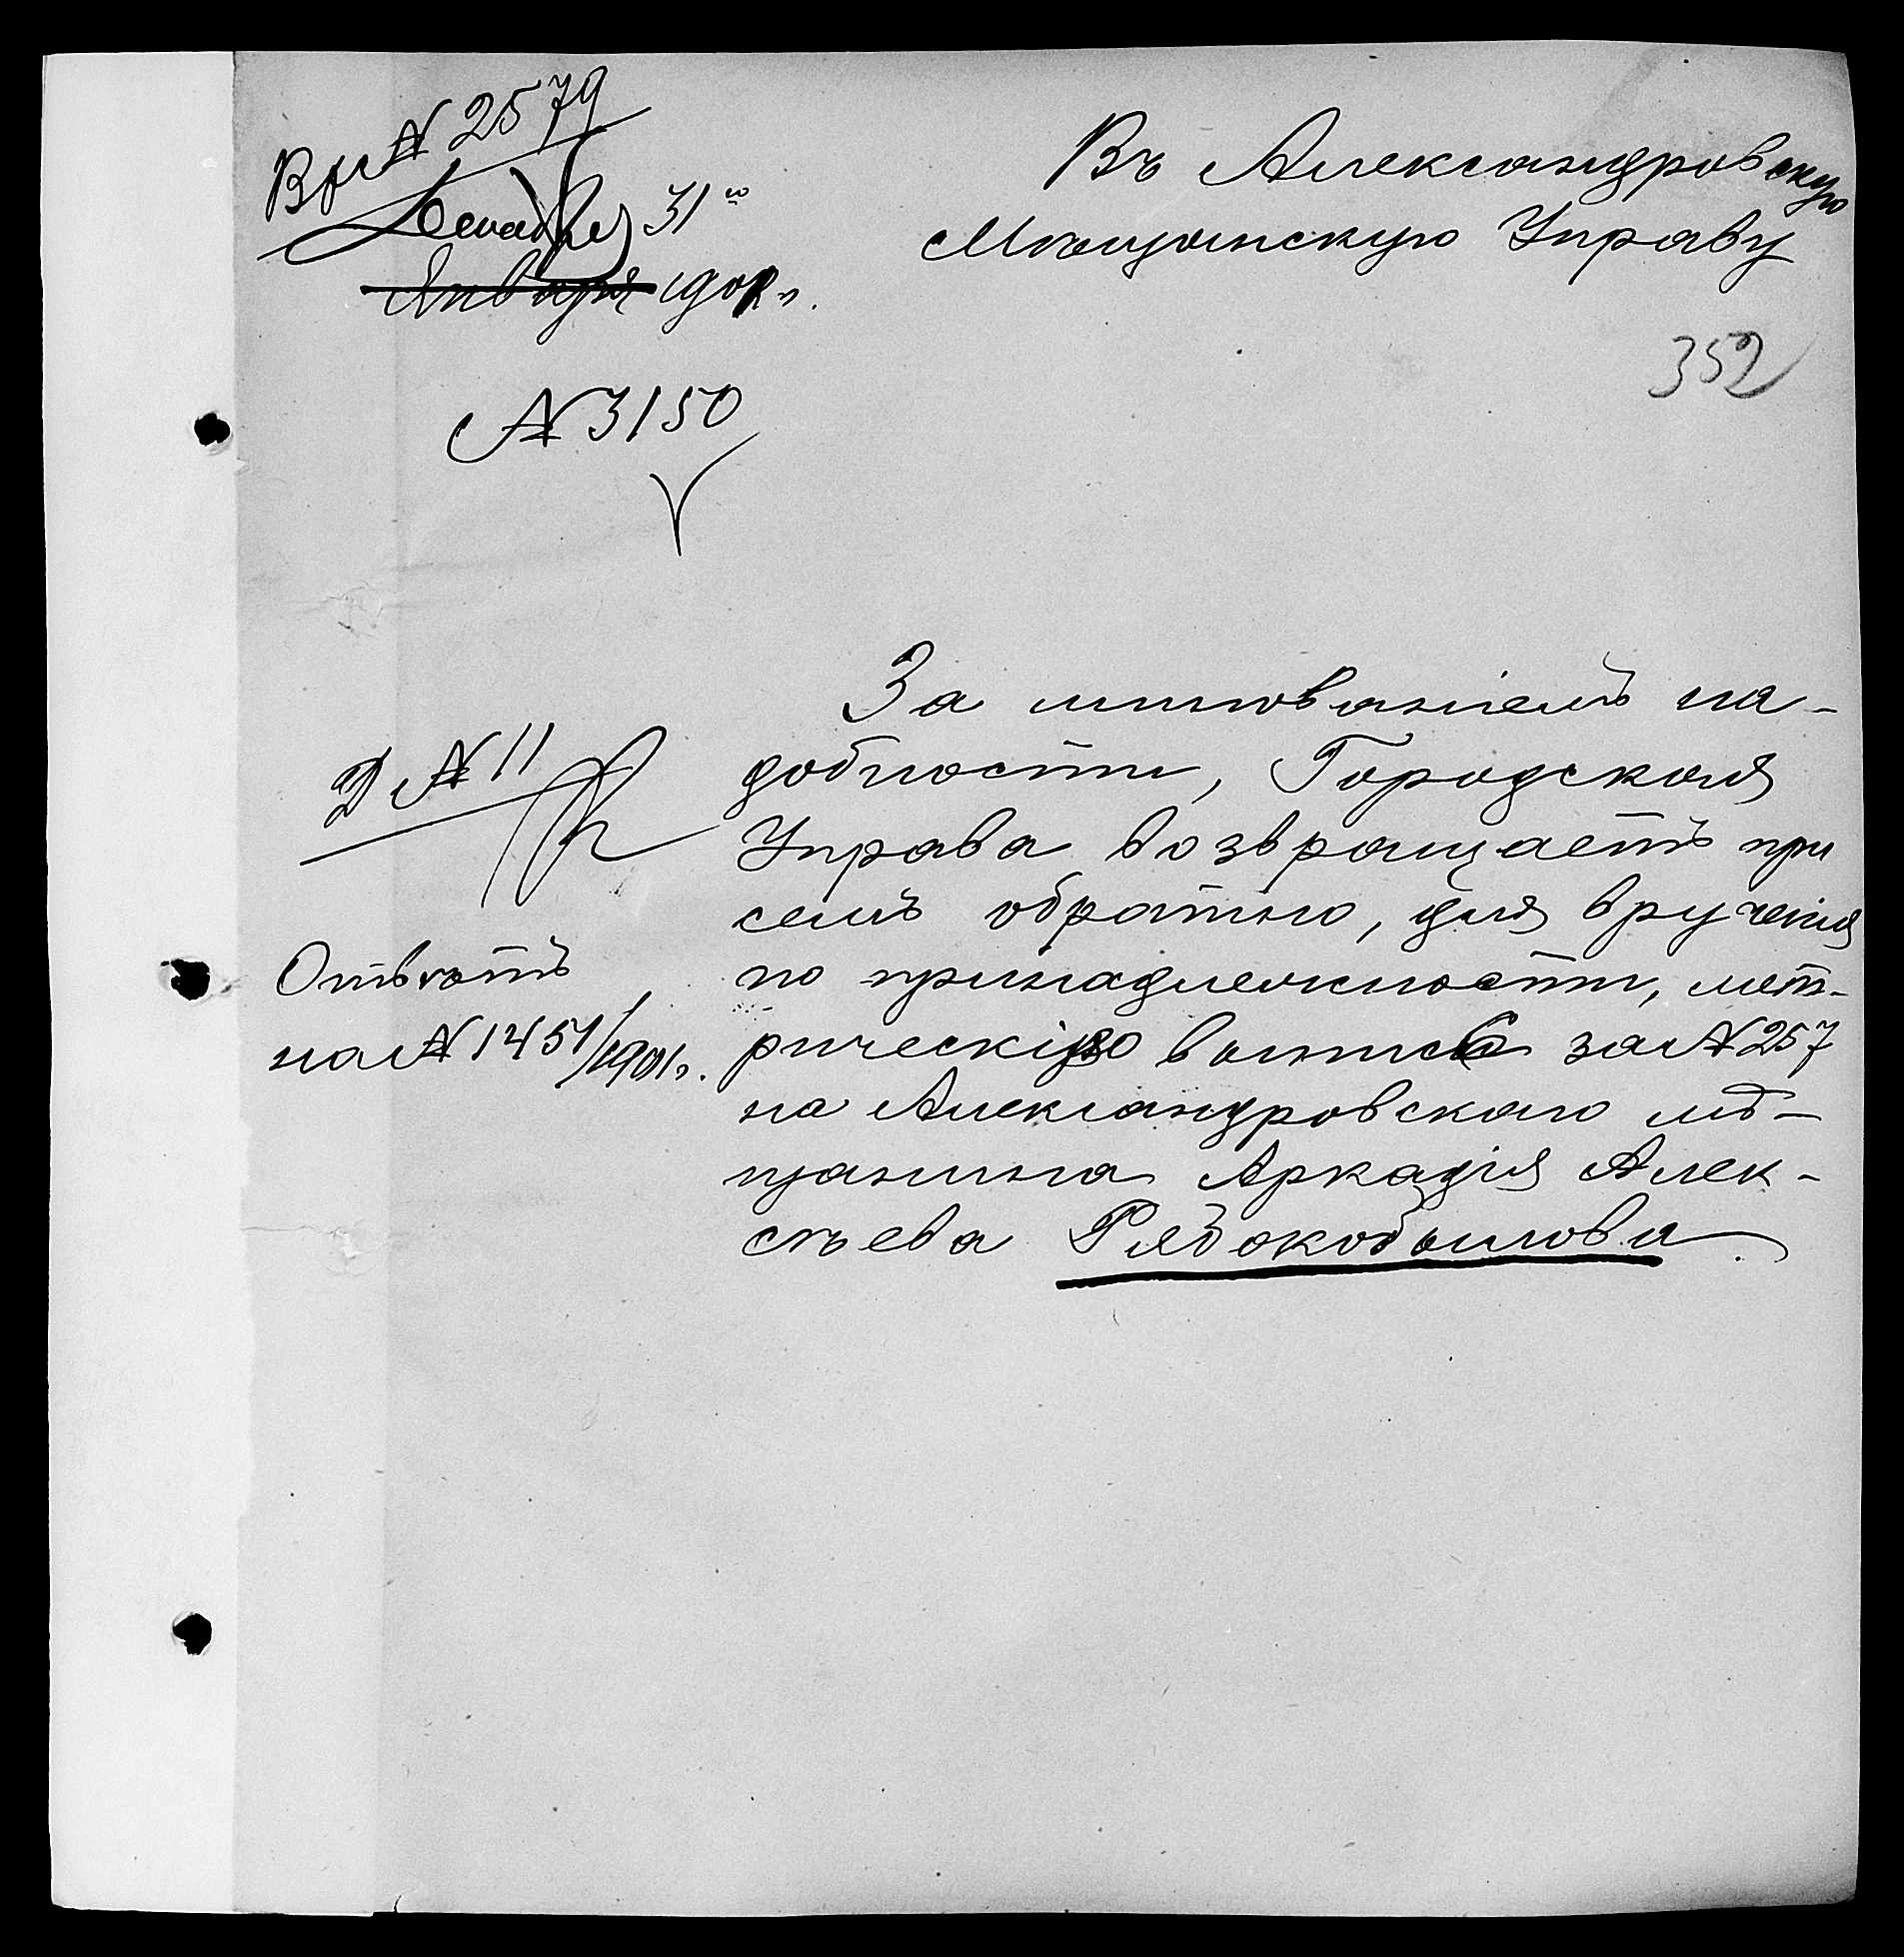 Вх. № 2579
Декабря 31го
Января 1901 г.
№ 3150
Въ Александровскую
Мѣщанскую Управу
352
За минованіемъ на-
добности, Городская
Управа возвращаетъ при
семъ обратно, для врученія
по принадлежности, мет-
рическую выпись за № 257
на Александровскаго мѣ-
щанина Аркадія Алек-
сѣева Рябокобылова
Д № 11
Отвѣтъ
на № 1451/1901 г.